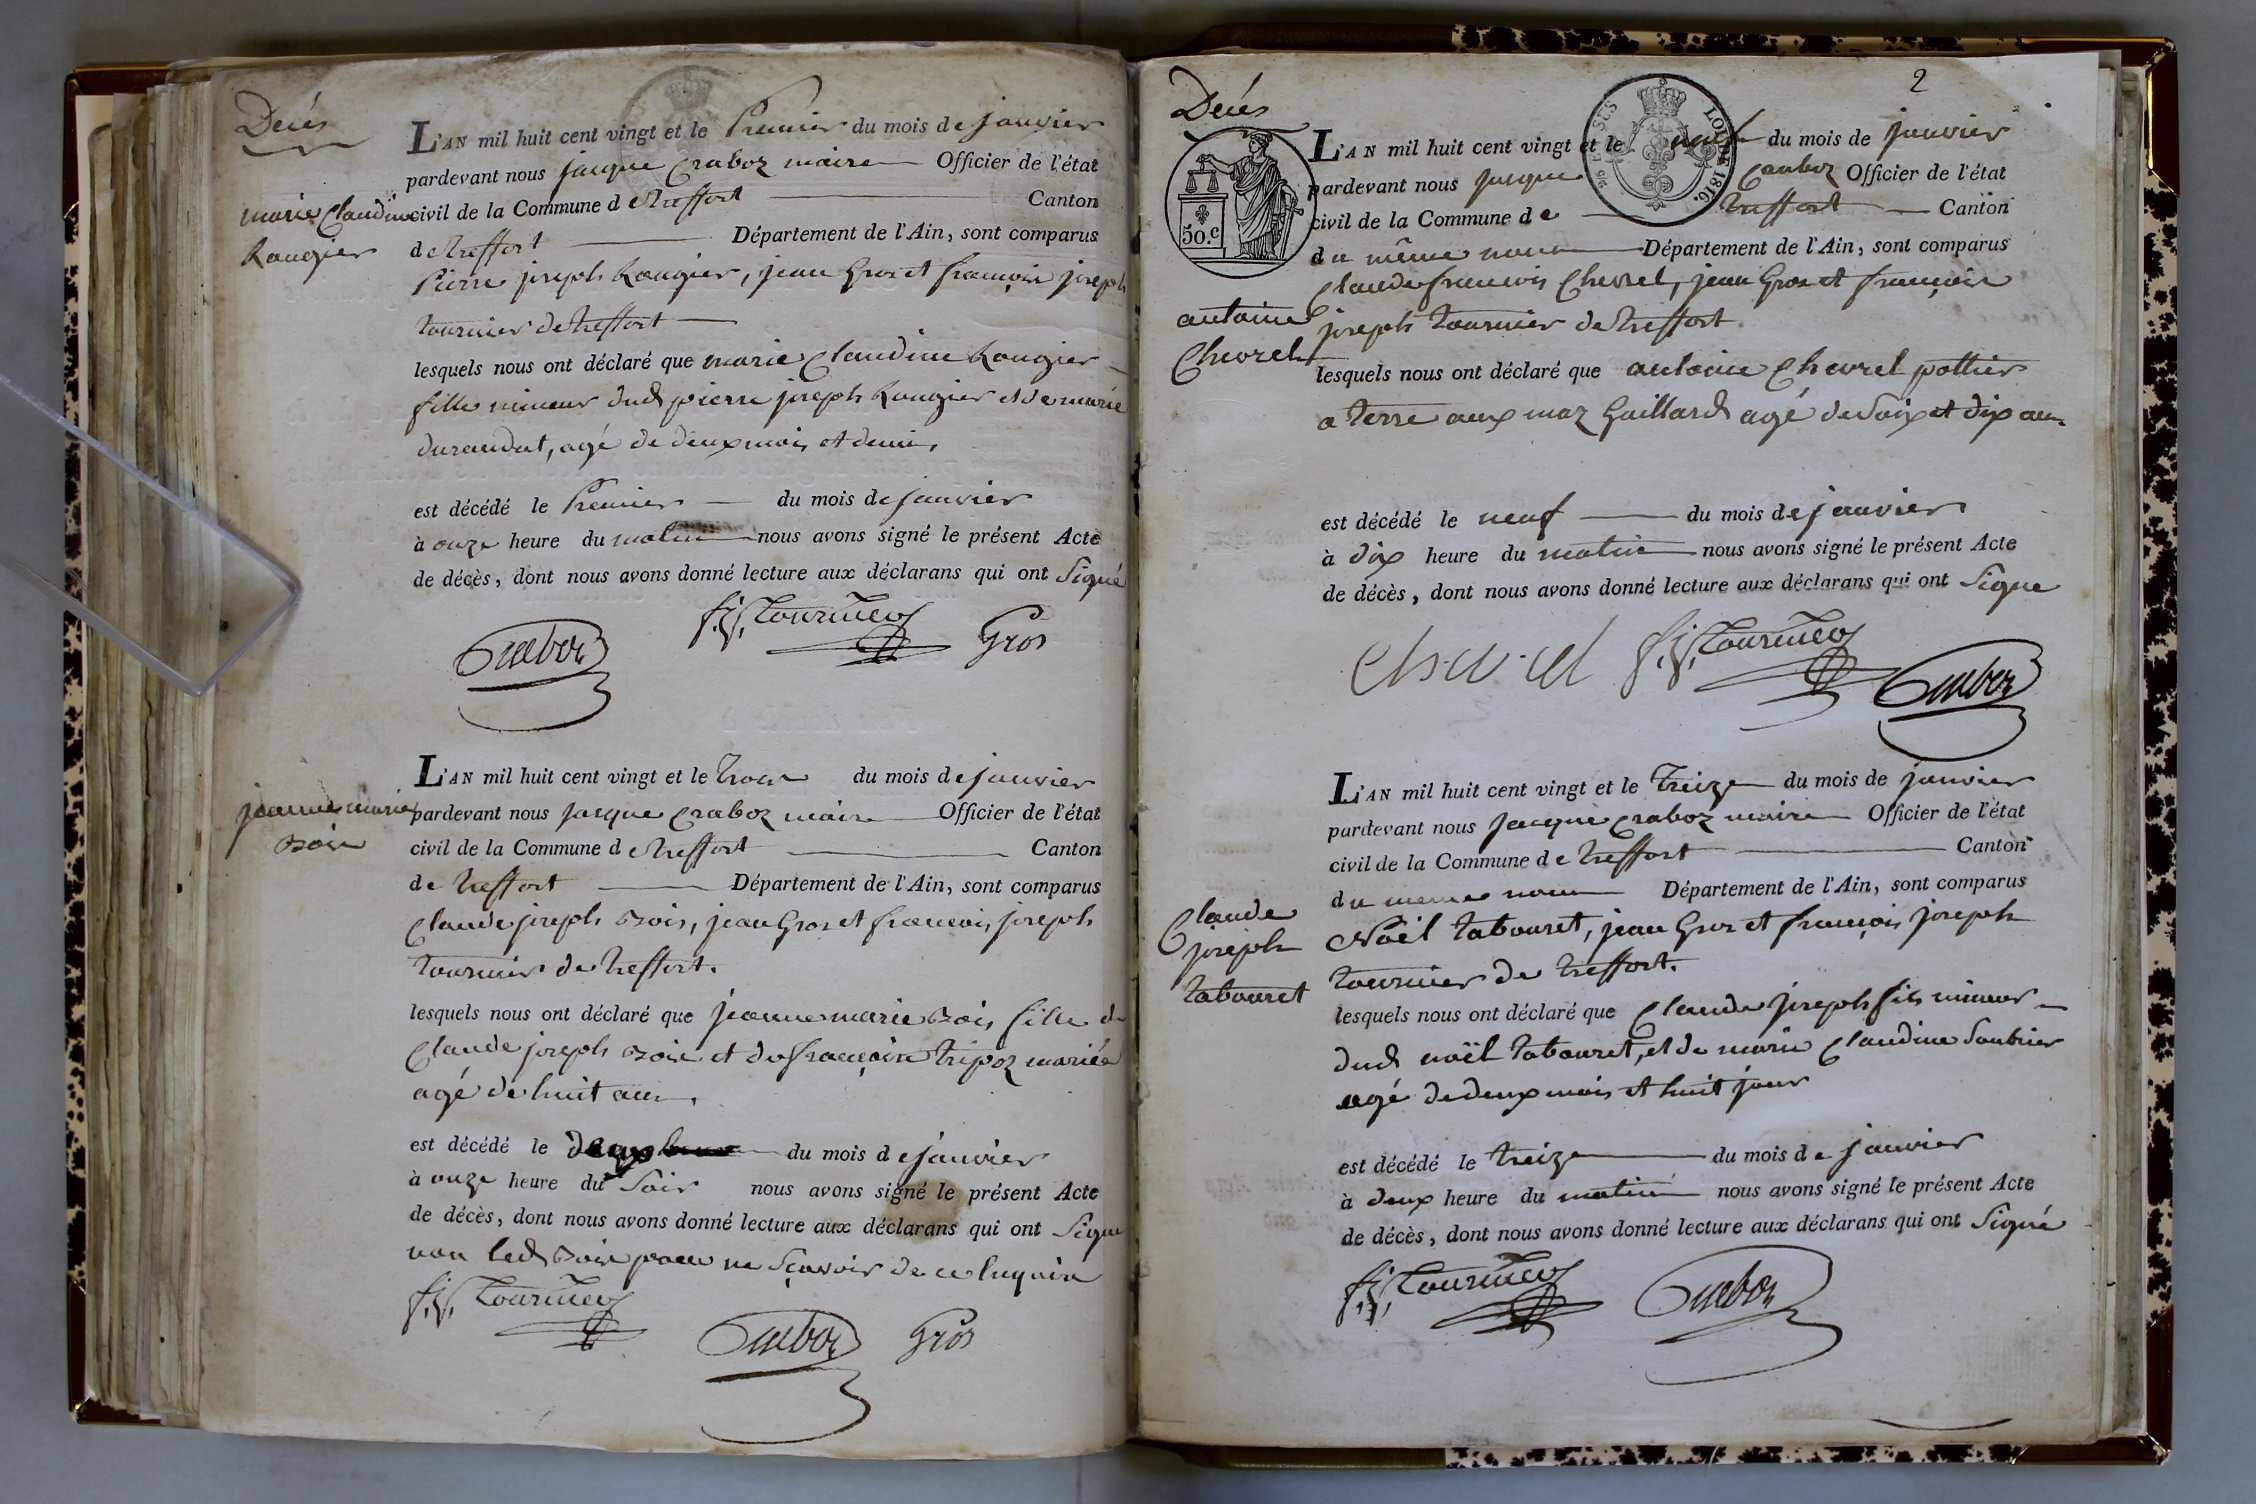 Decés
marie Claudine
Rougier
L'AN mil huit cent vingt et le Premier du mois de janvier
pardevant nous Jacque Craboz maire Officier de l'état
civil de la Commune de treffort Canton
de treffort Département de l'Ain, sont comparus
Pierre joseph Rougier, jean Gros et françois joseph
tournier de treffort
lesquels nous ont déclaré que marie Claudine Rougier
fille mineur dud pierre joseph Rougier et de marie
durandat, agé de deux mois et demi,
est décédé le Premier du mois de janvier
à onze heure du matin nous avons signé le présent Acte
de décès, dont nous avons donné lecture aux déclarans qui ont Signé
Craboz f.j. Tournier Gros
jeanne marie
L'AN mil huit cent vingt et le trois du mois de janvier
pardevant nous Jacque Craboz maire Officier de l'état
civil de la Commune de treffort Canton
de treffort Département de l'Ain, sont comparus
Claude joseph, jean Gros et françois joseph
tournier de treffort.
lesquels nous ont déclaré que jeanne marie fille de
Claude joseph et de françoise tripoz mariée
agé de huit ans.
est décédé le deux du mois de janvier
à onze heure du Soir nous avons signé le présent Acte
de décès, dont nous avons donné lecture aux déclarans qui ont Signé
non led pour ne Sçavoir de ce Enquis
f.j. Tournier Craboz Gros
2
Decés
LOI DE 1816.
50.c
antoine
Chevrel
L'AN mil huit cent vingt et le neuf du mois de janvier
pardevant nous Jacque Craboz Officier de l'état
civil de la Commune de treffort Canton
du même nom Département de l'Ain, sont comparus
Claude francois Chevrel, jean Gros et françois
joseph tournier de treffort.
lesquels nous ont déclaré que antoine Chevrel pottier
a terre aux maz Gaillard agé de Soix et dix ans
est décédé le neuf du mois de janvier
à dix heure du matin nous avons signé le présent Acte
de décès, dont nous avons donné lecture aux déclarans qui ont Signé
Chevrel f.j. Tournier Craboz
Claude
joseph
tabouret
L'AN mil huit cent vingt et le treize du mois de janvier
pardevant nous Jacque Craboz maire Officier de l'état
civil de la Commune de treffort Canton
du meme nom Département de l'Ain, sont comparus
Noël tabouret, jean Gros et françois joseph
tournier de treffort.
lesquels nous ont déclaré que Claude joseph fils mineur
dud noël tabouret, et de marie Claudine
agé de deux mois et huit jour
est décédé le treize du mois de janvier
à deux heure du matin nous avons signé le présent Acte
de décès, dont nous avons donné lecture aux déclarans qui ont Signé
f.j. Tournier Craboz